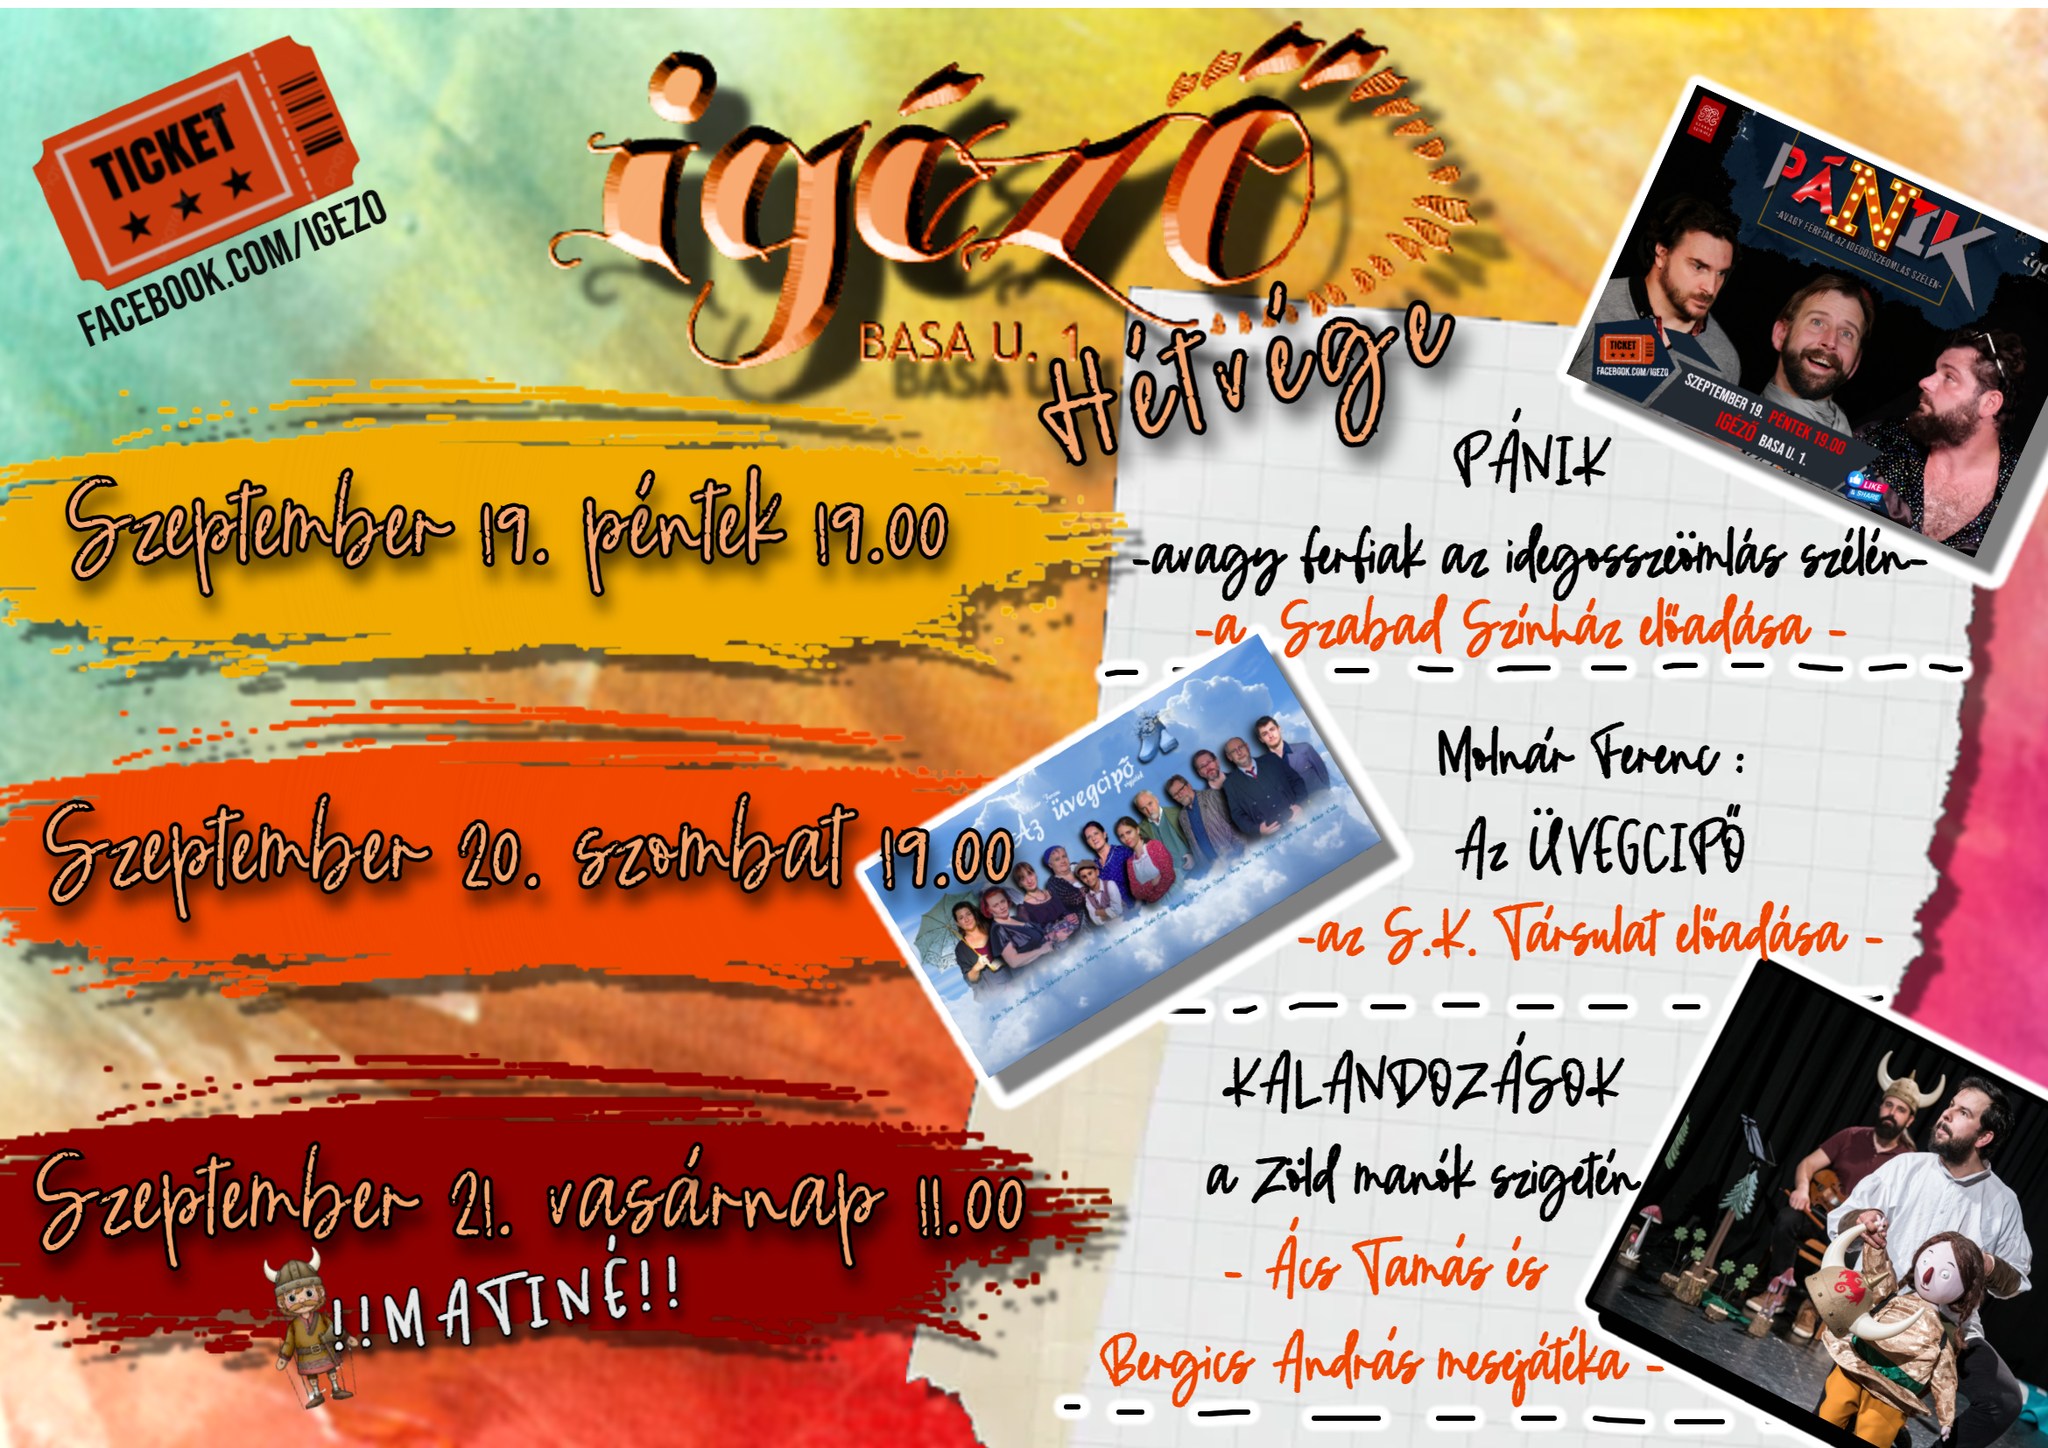 TICKET
FACEBOOK.COM/IGEZO
igéző
BASA U. 1.
Hétvége
PÁNIK
-AVAGY FÉRFIAK AZ IDEGÖSSZEOMLÁS SZÉLÉN-
TICKET
FACEBOOK.COM/IGEZO
SZEPTEMBER 19. PÉNTEK 19.00
IGÉZŐ BASA U. 1.
LIKE
& SHARE
Szeptember 19. péntek 19.00
PÁNIK
-avagy ferfiak az idegosszeömlás szélén-
-a Szabad Színház előadása -
Szeptember 20. szombat 19.00
Az üvegcipő
Molnár Ferenc :
Az ÜVEGCIPŐ
-az S.K. Társulat előadása -
Szeptember 21. vasárnap 11.00
!!MATINÉ!!
KALANDOZÁSOK
a Zöld manók szigetén
- Ács Tamás és
Bergics András mesejátéka -